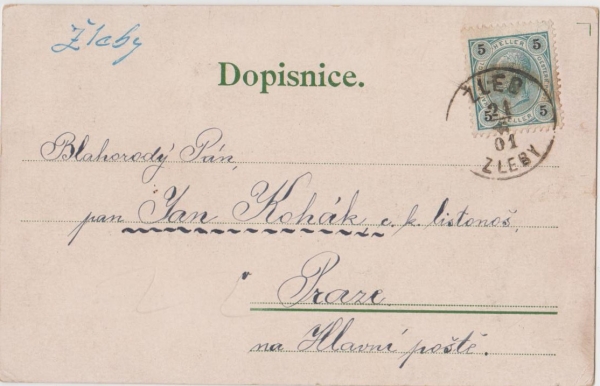 Žleby
Dopisnice.
5 HELLER 5
5 HELLER 5
ŽLEB
21
01
ZLEBY
Blahorodý Pán,
pan Jan Kohák c. k. listonoš,
Praze
na Hlavní poště.